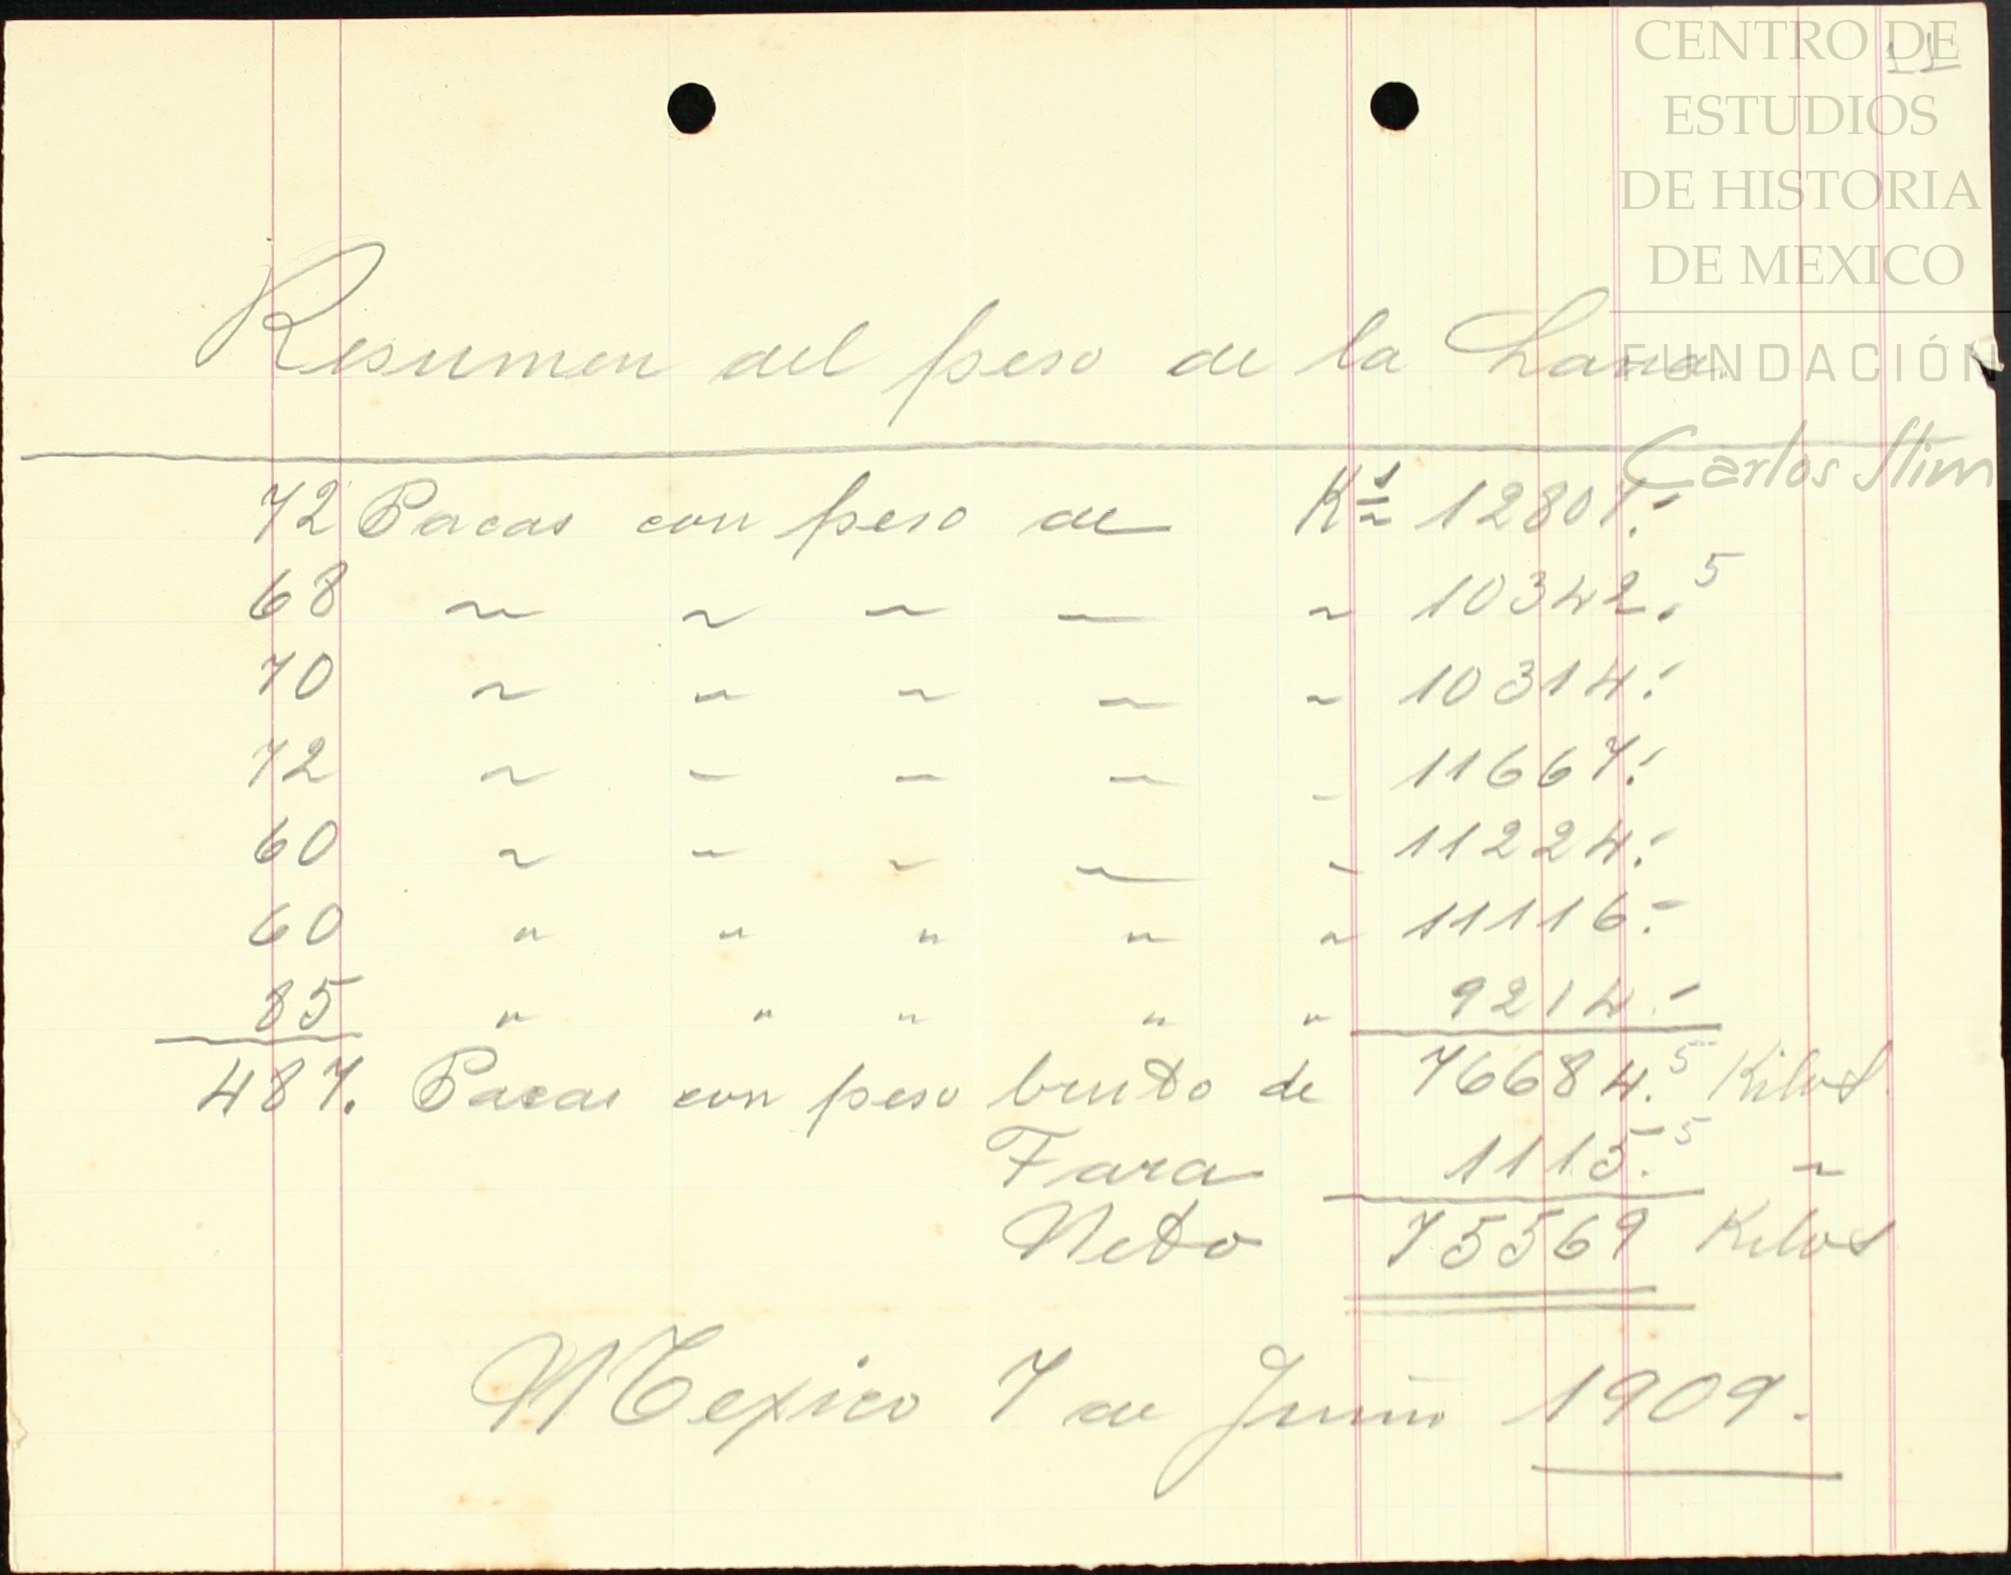 CENTRO DE
ESTUDIOS
DE HISTORIA
DE MEXICO
FUNDACIÓN
Carlos Slim
Resumen del peso de la Lana.
72 Pacas con peso de Kˢ 12807.-
68 " " " " " 10342.5
70 " " " " " 10314.-
72 " " " " " 11667.-
60 " " " " " 11224.-
60 " " " " " 11116.-
85 " " " " " 9214.-
487. Pacas con peso bruto de 76684.5 Kilos
Tara 1115.5 "
Neto 75569 Kilos
Mexico 7 de Junio 1909.